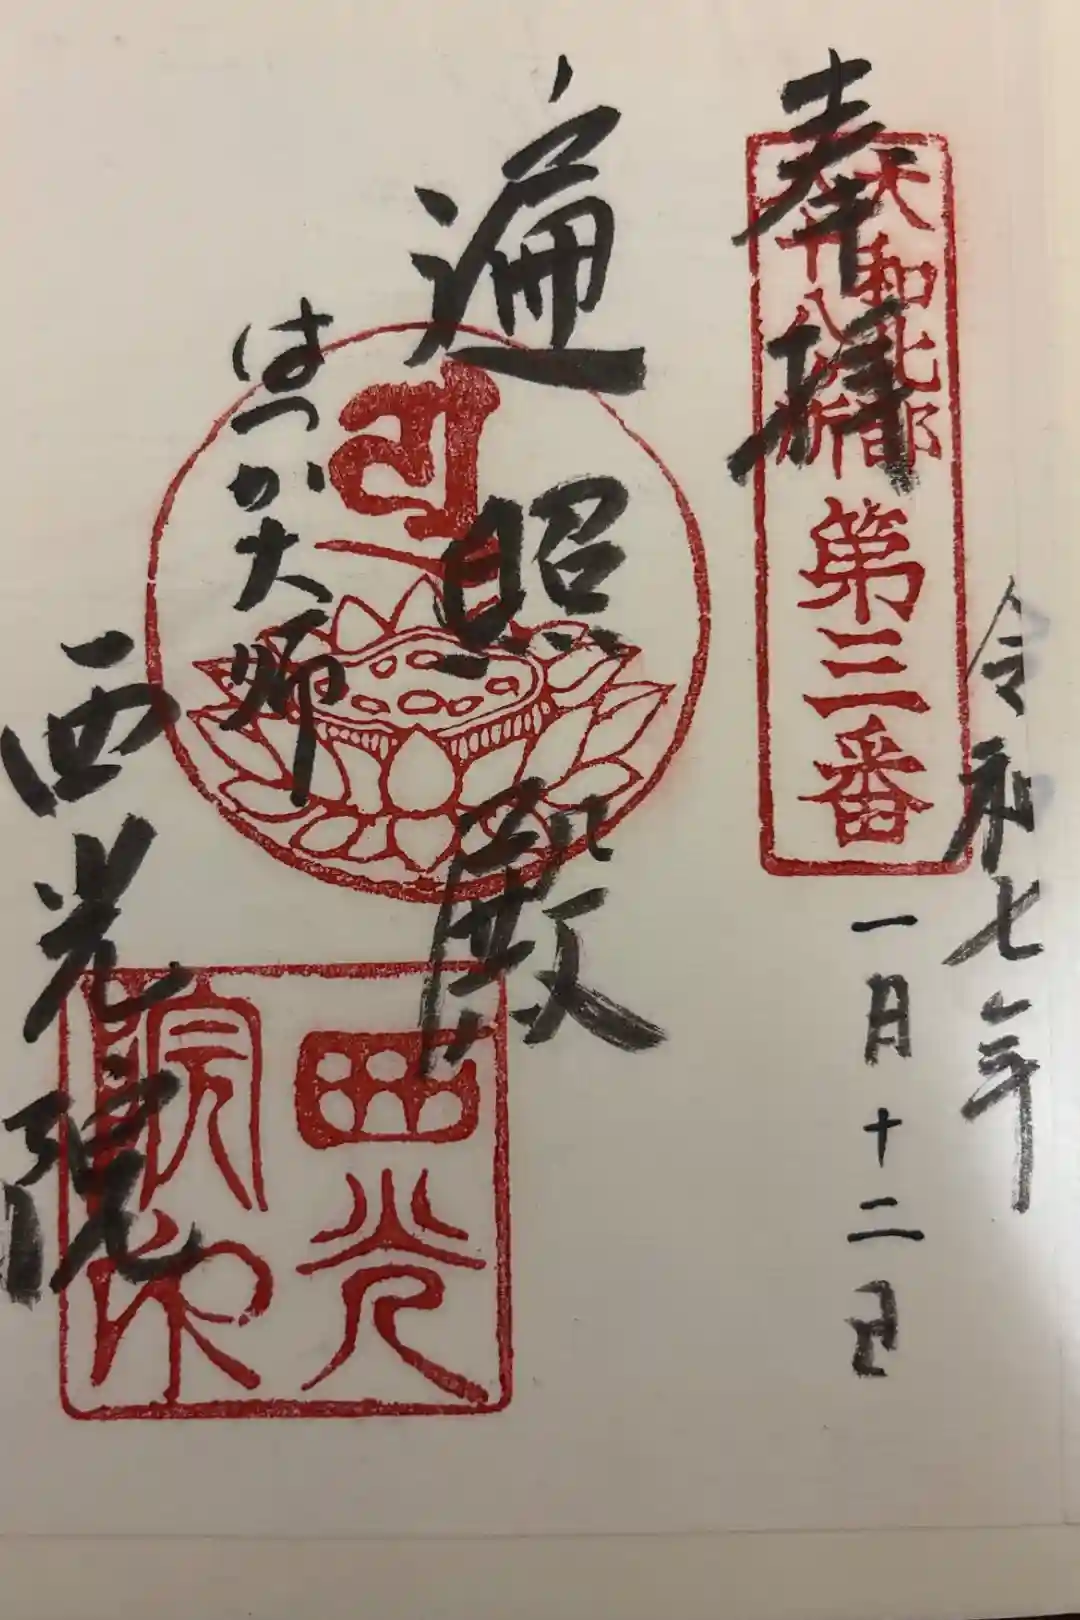 令和七年
一月十二日
奉拝
大和北部
八十八ヶ所
第三番
遍照殿
はつか大師
西光院
西光
院印